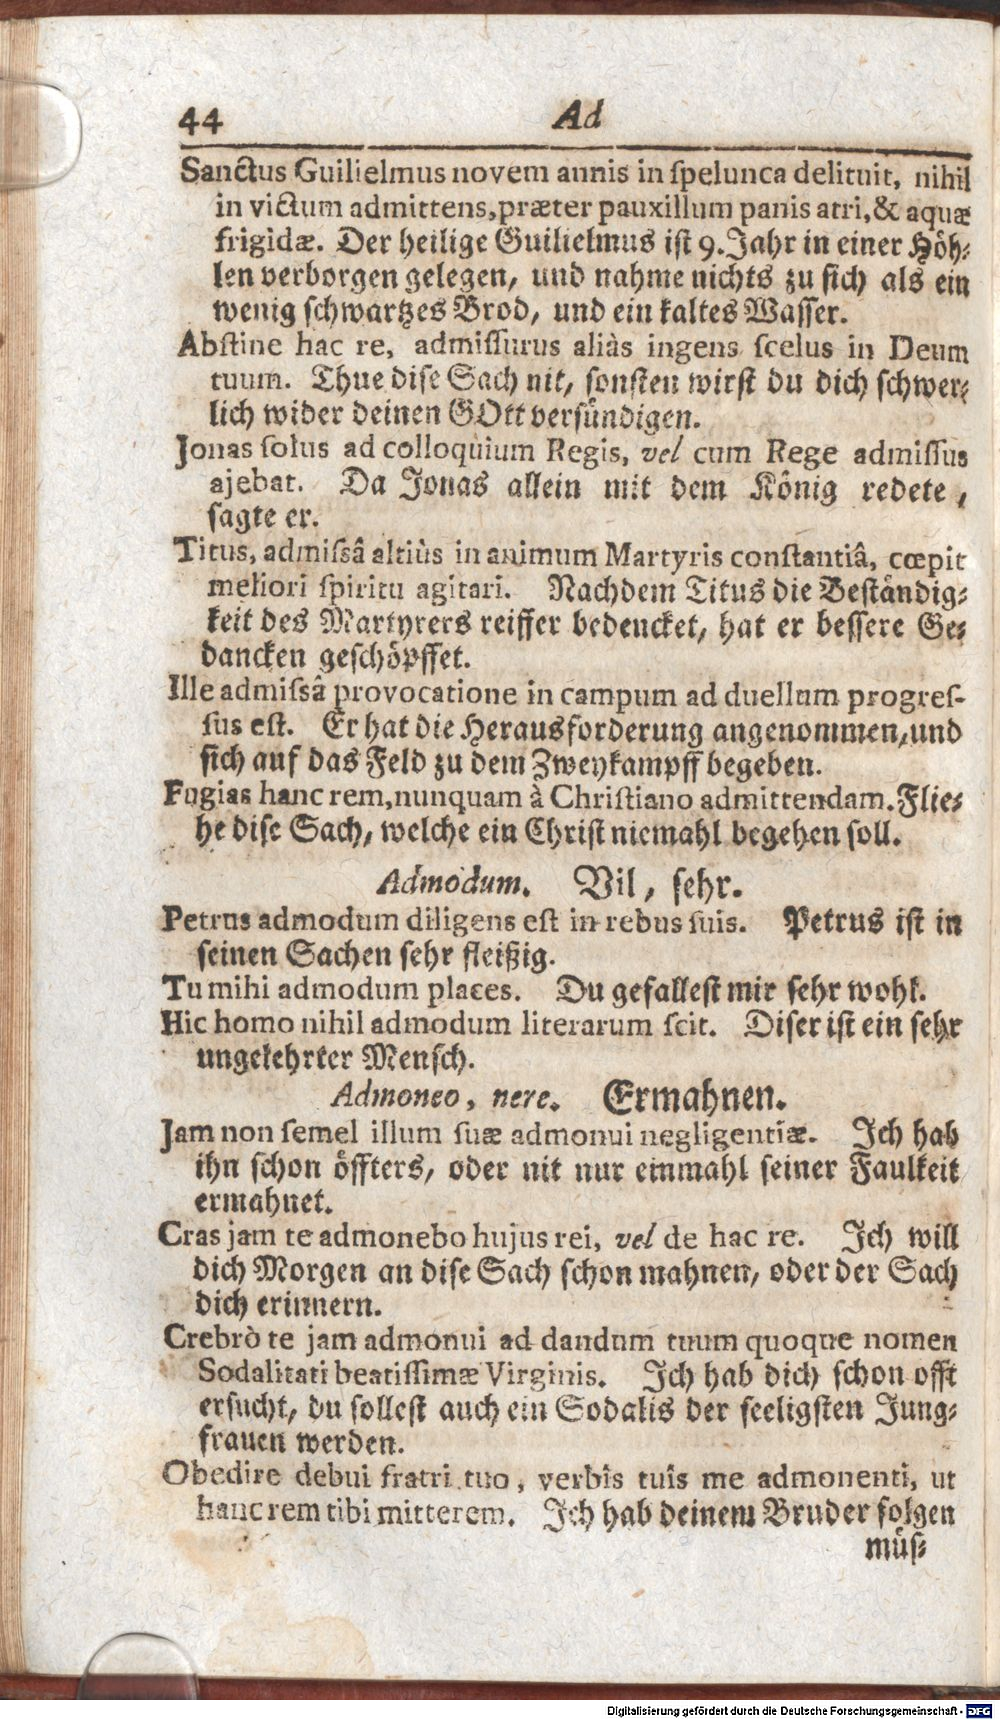 44 Ad
Sanctus Guilielmus novem annis in spelunca delituit, nihil
in victum admittens, præter pauxillum panis atri, & aquæ
frigidæ. Der heilige Guilielmus ist 9. Jahr in einer Höh-
len verborgen gelegen, und nahme nichts zu sich als ein
wenig schwartzes Brod, und ein kaltes Wasser.
Abstine hac re, admissurus aliàs ingens scelus in Deum
tuum. Thue dise Sach nit, sonsten wirst du dich schwer-
lich wider deinen GOtt versündigen.
Jonas solus ad colloquium Regis, vel cum Rege admissus
ajebat. Da Jonas allein mit dem König redete,
sagte er.
Titus, admissâ altiùs in animum Martyris constantiâ, cœpit
meliori spiritu agitari. Nachdem Titus die Beständig-
keit des Martyrers reiffer bedencket, hat er bessere Ge-
dancken geschöpffet.
Ille admissâ provocatione in campum ad duellum progres-
sus est. Er hat die Herausforderung angenommen, und
sich auf das Feld zu dem Zweykampff begeben.
Fugias hanc rem, nunquam à Christiano admittendam. Flie-
he dise Sach, welche ein Christ niemahl begehen soll.
Admodum. Vil, sehr.
Petrus admodum diligens est in rebus suis. Petrus ist in
seinen Sachen sehr fleißig.
Tu mihi admodum places. Du gefallest mir sehr wohl.
Hic homo nihil admodum literarum scit. Diser ist ein sehr
ungelehrter Mensch.
Admoneo, nere. Ermahnen.
Jam non semel illum suæ admonui negligentiæ. Ich hab
ihn schon öffters, oder nit nur einmahl seiner Faulkeit
ermahnet.
Cras jam te admonebo hujus rei, vel de hac re. Ich will
dich Morgen an dise Sach schon mahnen, oder der Sach
dich erinnern.
Crebrò te jam admonui ad dandum tuum quoque nomen
Sodalitati beatissimæ Virginis. Ich hab dich schon offt
ersucht, du sollest auch ein Sodalis der seeligsten Jung-
frauen werden.
Obedire debui fratri tuo, verbis tuis me admonenti, ut
hanc rem tibi mitterem. Ich hab deinem Bruder folgen
müs-
Digitalisierung gefördert durch die Deutsche Forschungsgemeinschaft - DFG